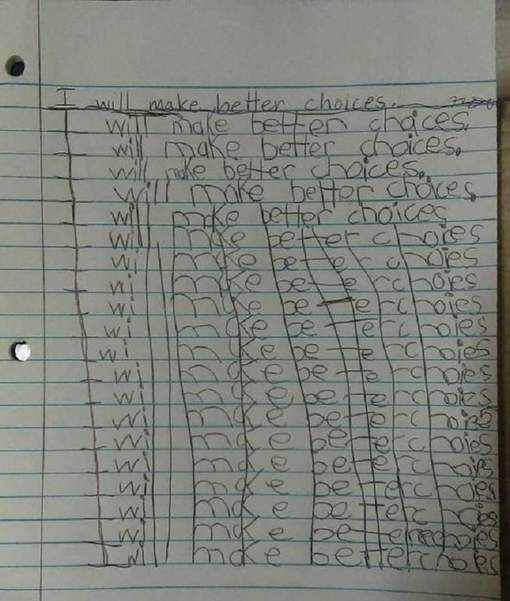 I will make better choices.
I will make better choices.
I will make better choices.
I will make better choices.
I will make better choices.
I will make better choices
I will make better choies
I will make better choies
I will make better choies
I will make better choies
I will make better choies
I will make better choies
I will make better choies
I will make better choies
I will make better choies
I will make better choies
I will make better chois
I will make better choies
I will make better choies
I will make better choies
I will make better choies